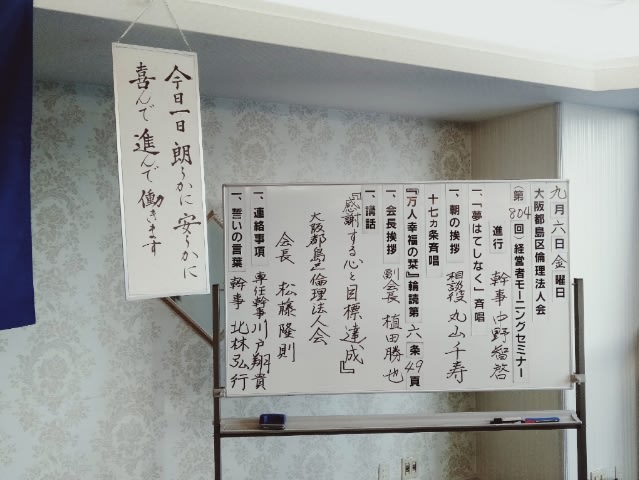 今日一日 朗らかに 安らかに
喜んで 進んで 働きます
九月六日 金曜日
大阪都島区倫理法人会
(第804回)経営者モーニングセミナー
進行 幹事 中野智啓
一、「夢はてしなく」斉唱
一、朝の挨拶 相談役 丸山千寿
十七ヵ条斉唱
『万人幸福の栞』輪読第六条49頁
一、会長挨拶 副会長 植田勝也
一、講話
『感謝する心と目標達成』
大阪都島区倫理法人会
会長 松藤隆則
一、連絡事項 専任幹事 川戸翔貴
一、誓いの言葉 幹事 北林弘行